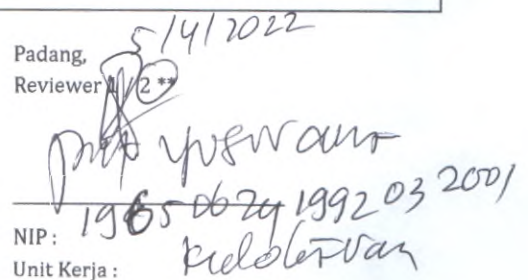 Padang, 5/4/2022
Reviewer 1 / 2 **
Yusrawati
NIP : 19650624 1992 03 2001
Unit Kerja : Kedokteran